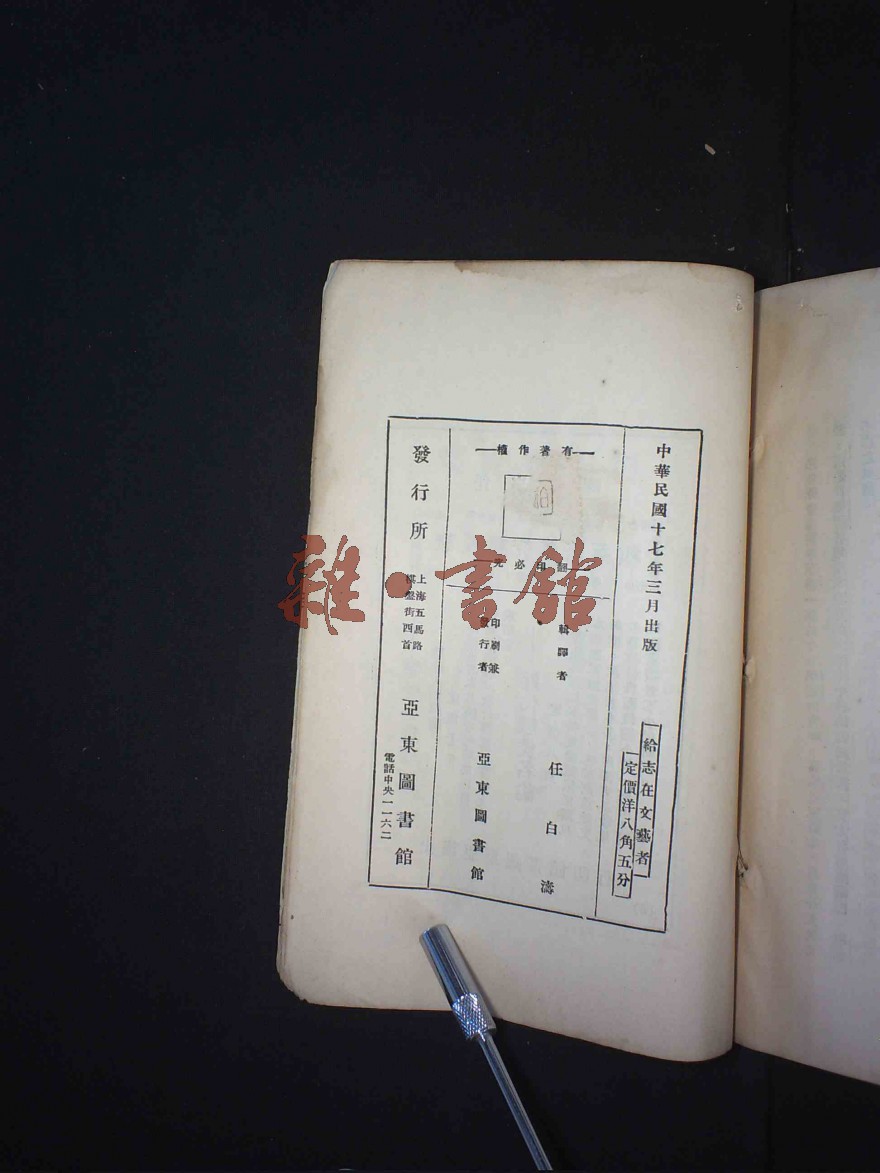 中華民國十七年三月出版
給志在文藝者
定價洋八角五分
有著作權
翻印必究
輯譯者
任白濤
印刷兼
發行者
亞東圖書館
發行所
上海五馬路
棋盤街西首
亞東圖書館
電話中央一一六二
雜·書館